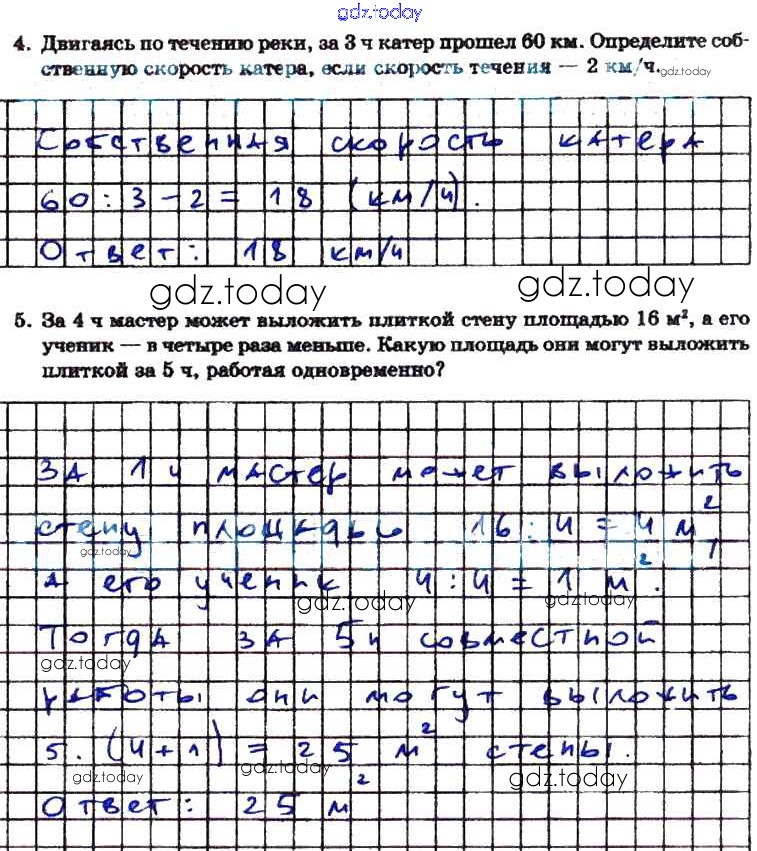 gdz.today
4. Двигаясь по течению реки, за 3 ч катер прошел 60 км. Определите соб-
ственную скорость катера, если скорость течения — 2 км/ч.
gdz.today
Собственная скорость катера
60 : 3 - 2 = 18 (км/ч).
Ответ: 18 км/ч
gdz.today gdz.today
5. За 4 ч мастер может выложить плиткой стену площадью 16 м², а его
ученик — в четыре раза меньше. Какую площадь они могут выложить
плиткой за 5 ч, работая одновременно?
За 1 ч мастер может выложить
стену площадью 16 : 4 = 4 м²,
gdz.today
а его ученик 4 : 4 = 1 м².
gdz.today gdz.today
Тогда за 5 ч совместной
gdz.today
работы они могут выложить
5 · (4 + 1) = 25 м² стены.
gdz.today gdz.today gdz.today
Ответ: 25 м²